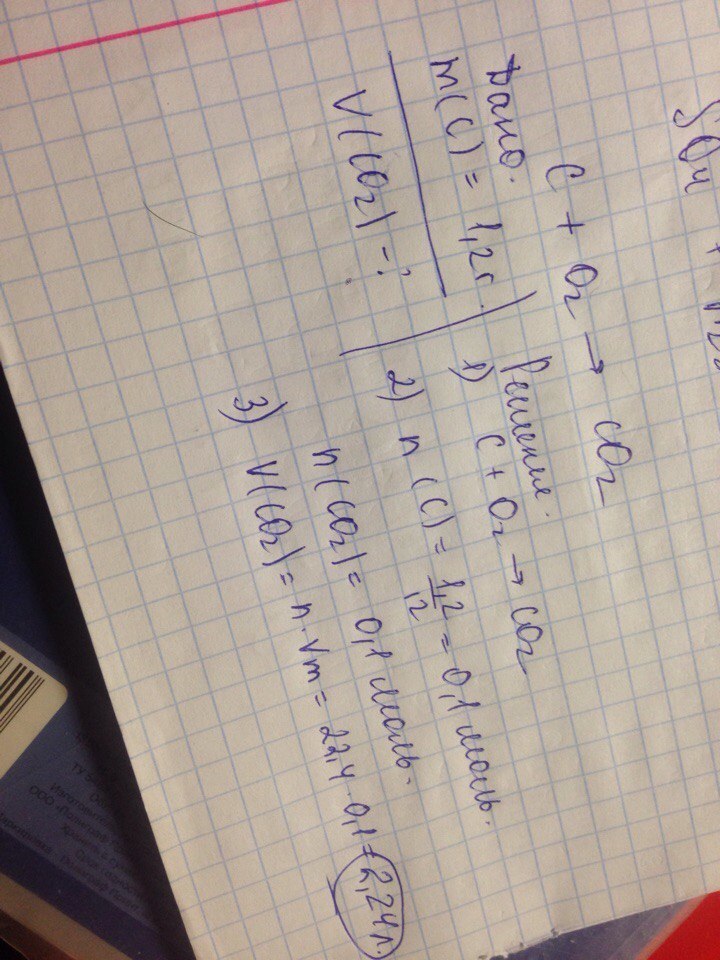 SO4 +
C + O2 → CO2
Дано:
m(C) = 1,2г.
V(CO2) - ?
Решение.
1) C + O2 → CO2
2) n (C) = 1,2/12 = 0,1 моль.
n(CO2) = 0,1 моль.
3) V(CO2) = n · Vm = 22,4 · 0,1 = 2,24 л.